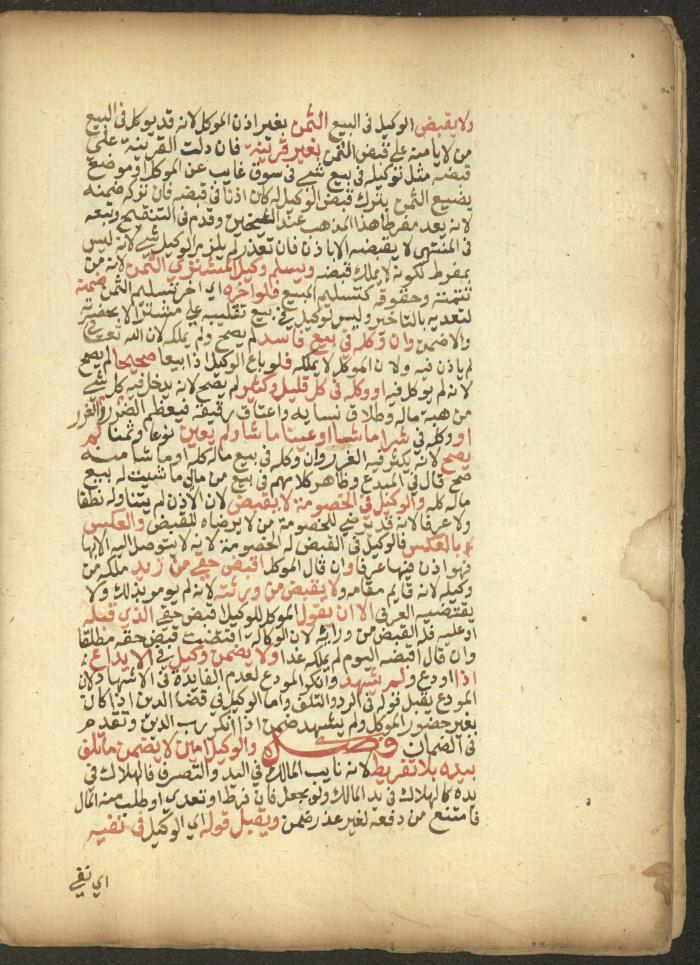 ولا يقبض الوكيل في البيع الثمن بغير اذن الموكل لانه قد يوكل في البيع
من لا يامنه على قبض الثمن بغير قرينة فان دلت القرينة على
قبضه مثل توكيله في بيع شي في سوق غايب عن الموكل او موضع
يضيع الثمن بترك قبض الوكيل له كان اذنا في قبضه فان تركه ضمنه
لانه يعد مفرطا هذا المذهب عند الشيخين وقدم في التنقيح وتبعه
في المنتهى لا يقبضه الا باذن فان تعذر لم يلزم الوكيل شي لانه ليس
بمفرط لكونه لا يملك قبضه ويسلم وكيل المشتري الثمن لانه من
تتمته وحقوقه كتسليم المبيع فلو اخره اي اخر تسليم الثمن ضمنه
لتعديه بالتاخير وليس لوكيل في بيع تقليبه على مشتر الا بحضرته
والا ضمن وان وكله في بيع فاسد لم يصح ولم يملكه لان الله تعالى
لم ياذن فيه ولان الموكل لا يملكه فلو باع الوكيل اذا بيعا صحيحا لم يصح
لانه لم يوكل فيه او وكله في كل قليل وكثير لم يصح لانه يدخل فيه كل شي
من هبة ماله وطلاق نسايه واعتاق رقيقه فيعظم الضرر والغرر
او وكله في شرا ما شا او عينا ما شا ولم يعين نوعا وثمنا لم
يصح لانه يكثر فيه الغرر وان وكله في بيع ماله كله او ما شا منه
صح قال في المبدع وظاهر كلامهم في بيع من مالي ما شيت له بيع
ماله كله والوكيل في الخصومة لا يقبض لان الاذن لم يتناوله نطقا
ولا عرفا لانه قد يرضى للخصومة من لا يرضاه للقبض والعكس
بالعكس فالوكيل في القبض له الخصومة لانه لا يتوصل اليه الا بها
فهو اذن فيها عرفا وان قال الموكل اقبض حقي من زيد ملكه من
وكيله لانه قايم مقامه ولا يقبض من ورثته لانه لم يومر بذلك ولا
يقتضيه العرف الا ان يقول الموكل للوكيل اقبض حقي الذي قبله
او عليه فله القبض من وارثه لان الوكالة اقتضت قبض حقه مطلقا
وان قال اقبضه اليوم لم يملكه غدا ولا يضمن وكيل في الايداع
اذا اودع ولم يشهد وانكر المودع لعدم الفايدة في الاشهاد لان
المودع يقبل قوله في الرد والتلف واما الوكيل في قضا الدين اذا كان
بغير حضور الموكل ولم يشهد ضمن اذا انكر رب الدين وتقدم
في الضمان فصل والوكيل امين لا يضمن ما تلف
بيده بلا تفريط لانه نايب المالك في اليد والتصرف فالهلاك في
يده كالهلاك في يد المالك ولو بجعل فان فرط او تعدى او طلب منه المال
فامتنع من دفعه لغير عذر ضمن ويقبل قوله اي الوكيل في نفيه
اي نفي